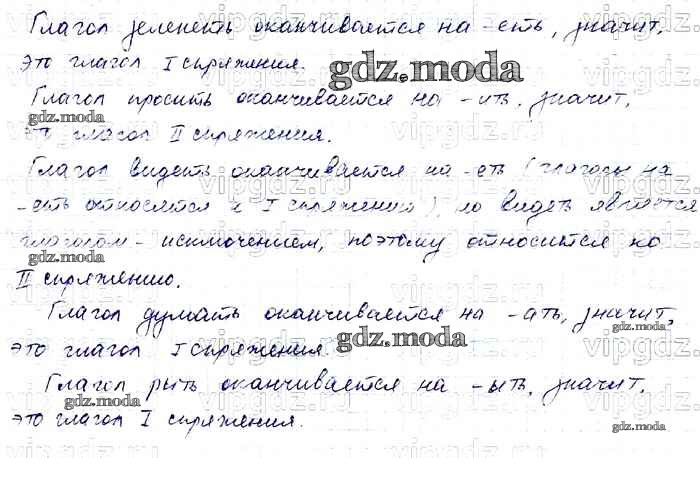 Глагол зеленеть оканчивается на -еть, значит,
это глагол I спряжения.
Глагол просить оканчивается на -ить, значит,
это глагол II спряжения.
Глагол видеть оканчивается на -еть (глаголы на
-еть относятся к I спряжению), но видеть является
глаголом - исключением, поэтому относится ко
II спряжению.
Глагол думать оканчивается на -ать, значит,
это глагол I спряжения.
Глагол рыть оканчивается на -ыть, значит,
это глагол I спряжения.
gdz.moda
vipgdz.ru